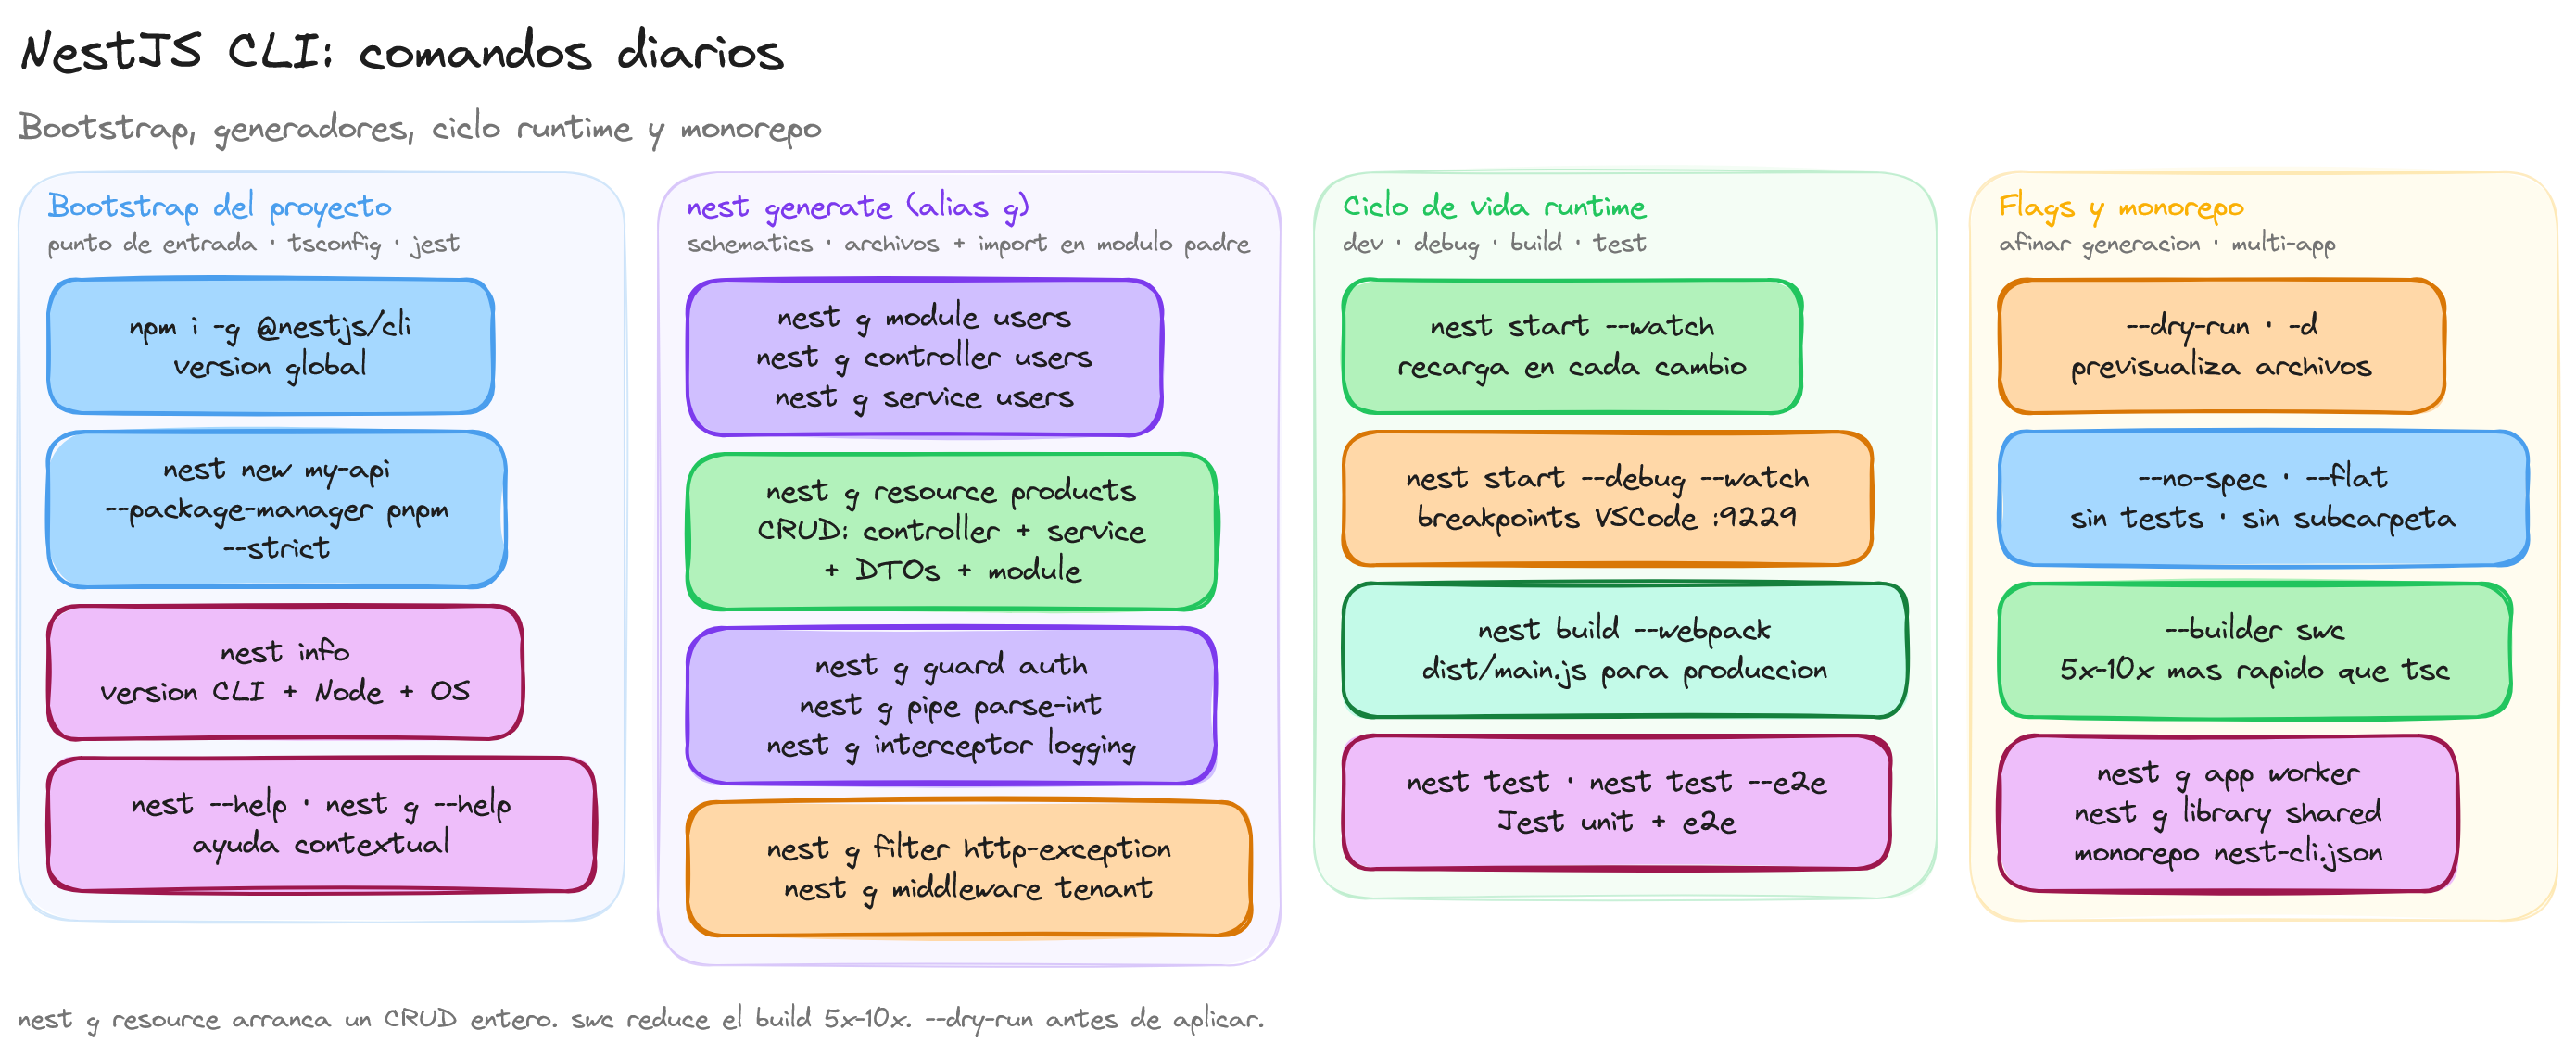 NestJS CLI: comandos diarios
Bootstrap, generadores, ciclo runtime y monorepo
Bootstrap del proyecto
punto de entrada · tsconfig · jest
npm i -g @nestjs/cli
version global
nest new my-api
--package-manager pnpm
--strict
nest info
version CLI + Node + OS
nest --help · nest g --help
ayuda contextual
nest generate (alias g)
schematics · archivos + import en modulo padre
nest g module users
nest g controller users
nest g service users
nest g resource products
CRUD: controller + service
+ DTOs + module
nest g guard auth
nest g pipe parse-int
nest g interceptor logging
nest g filter http-exception
nest g middleware tenant
Ciclo de vida runtime
dev · debug · build · test
nest start --watch
recarga en cada cambio
nest start --debug --watch
breakpoints VSCode :9229
nest build --webpack
dist/main.js para produccion
nest test · nest test --e2e
Jest unit + e2e
Flags y monorepo
afinar generacion · multi-app
--dry-run · -d
previsualiza archivos
--no-spec · --flat
sin tests · sin subcarpeta
--builder swc
5x-10x mas rapido que tsc
nest g app worker
nest g library shared
monorepo nest-cli.json
nest g resource arranca un CRUD entero. swc reduce el build 5x-10x. --dry-run antes de aplicar.